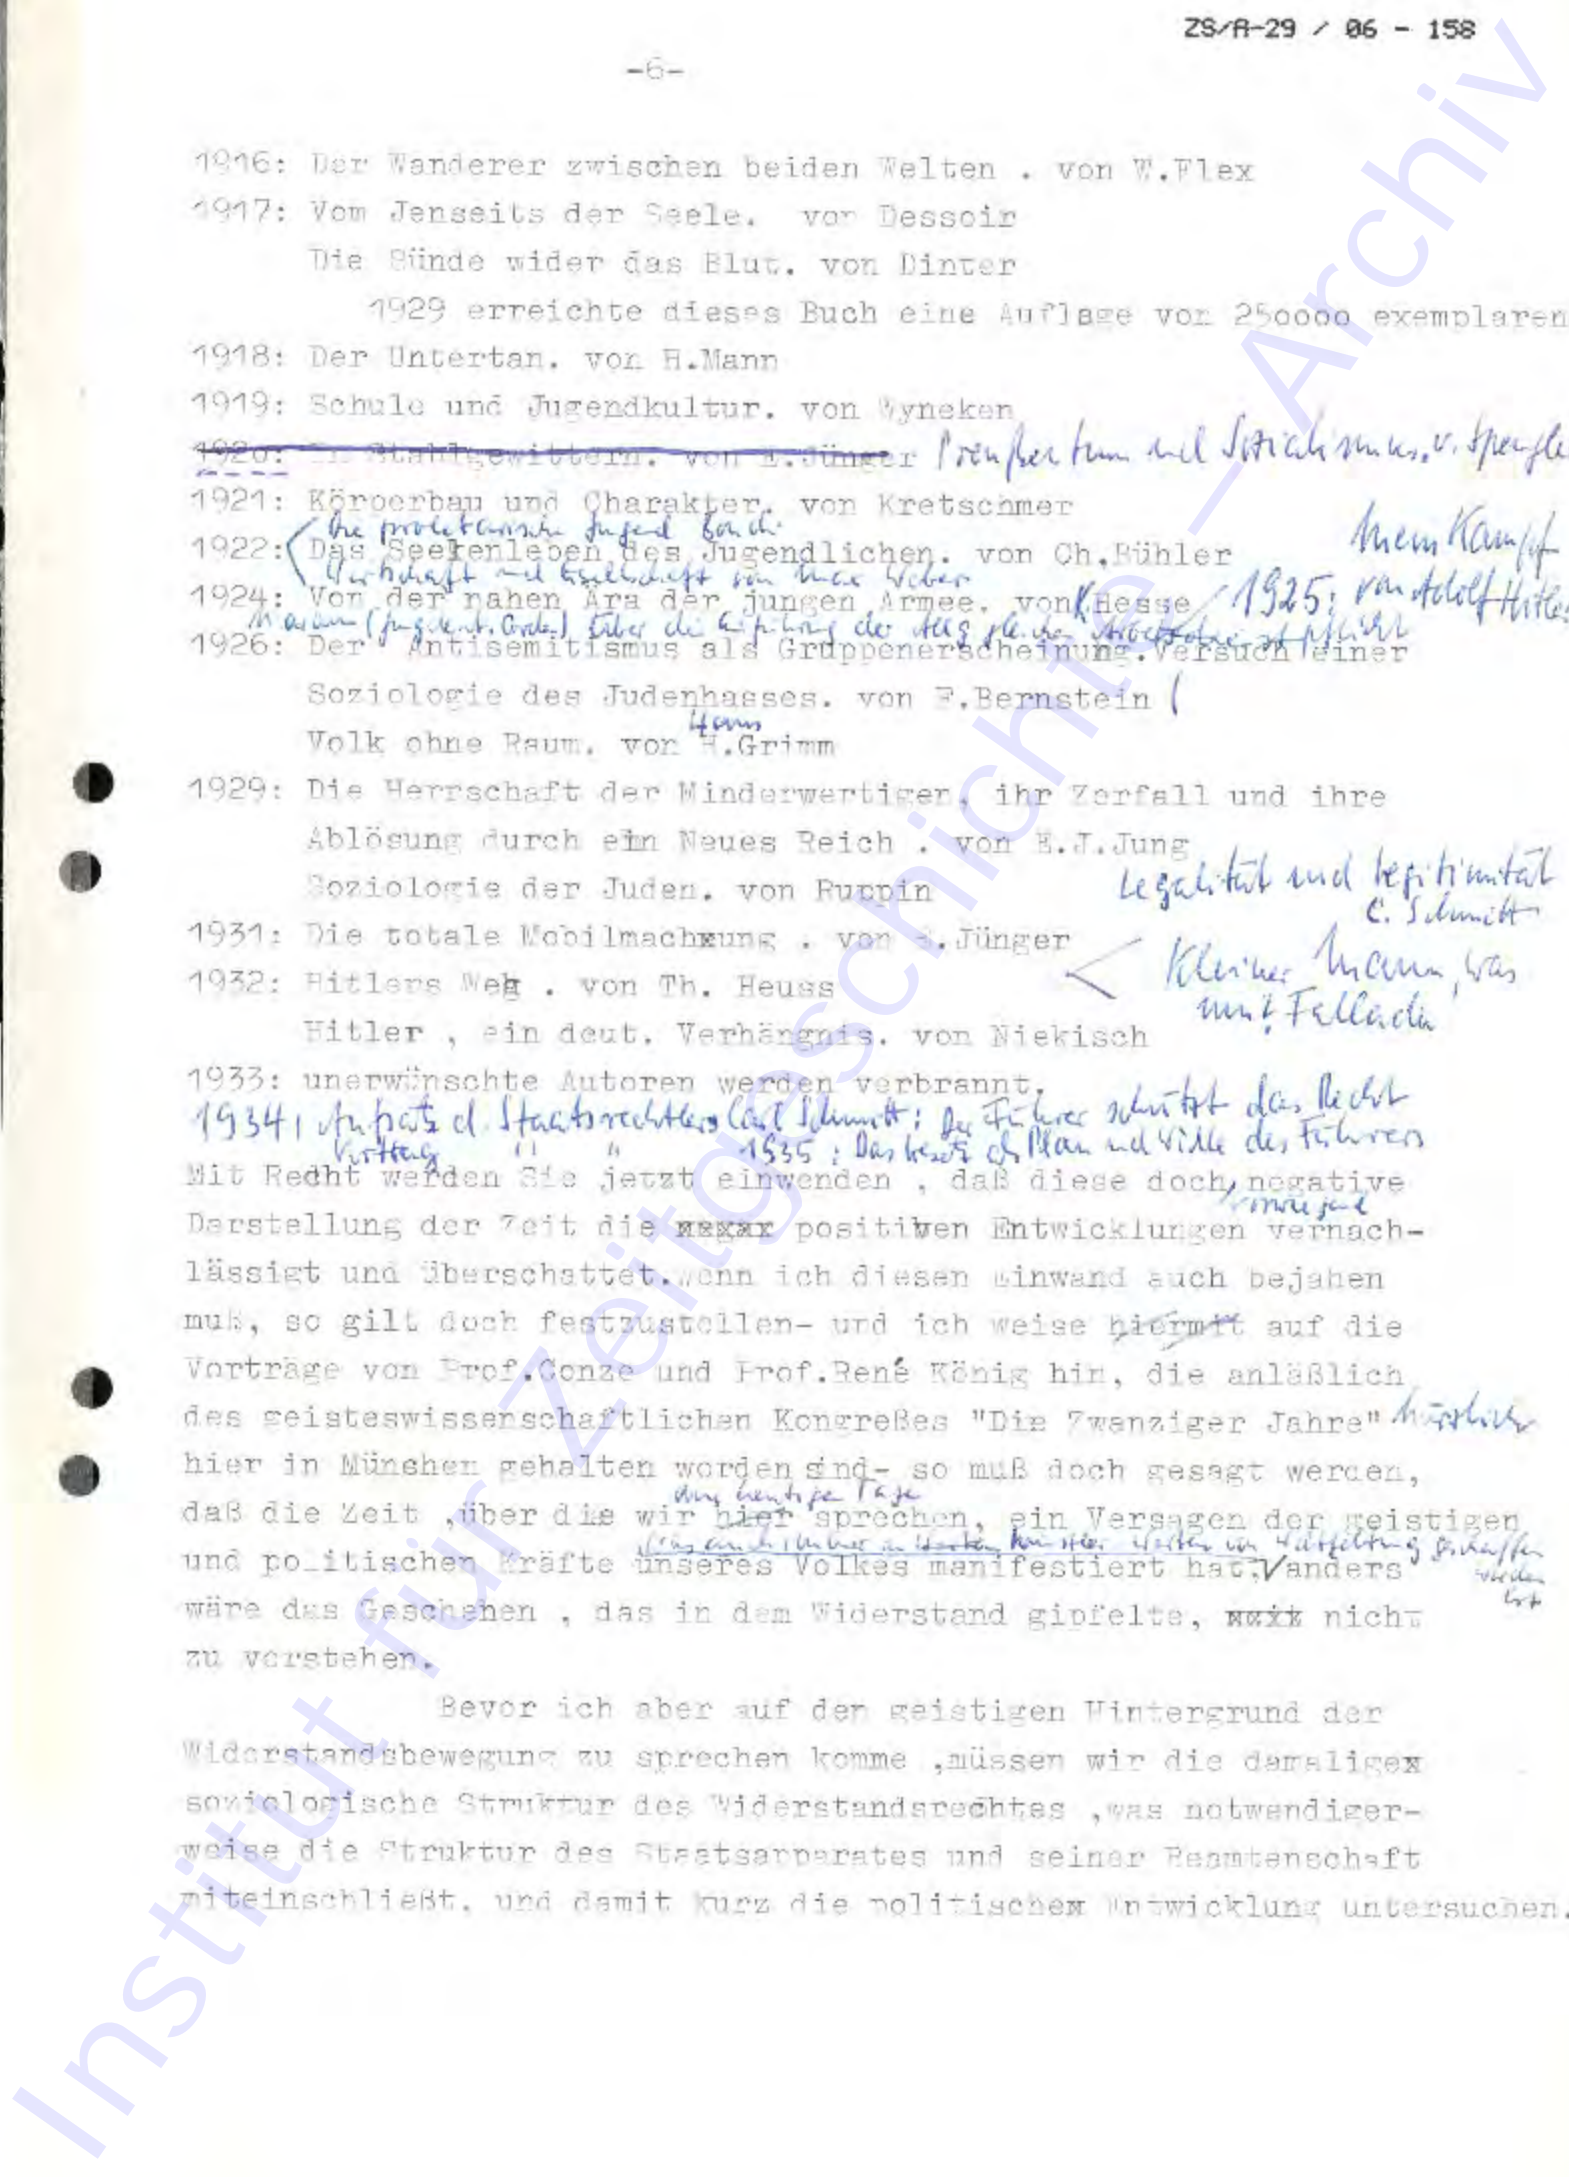 ZS/A-29 / 06 - 158
-6-
1916: Der Wanderer zwischen beiden Welten . von W.Flex
1917: Vom Jenseits der Seele. von Dessoir
Die Sünde wider das Blut. von Dinter
1929 erreichte dieses Buch eine Auflage von 250000 exemplaren
1918: Der Untertan. von H.Mann
1919: Schule und Jugendkultur. von Wyneken
1920: In Stahlgewittern. von E.Jünger Preußentum und Sozialismus. v. Spengle
1921: Körperbau und Charakter. von Kretschmer
Die proletarische Jugend
Mein Kampf
1922: Das Seelenleben des Jugendlichen. von Ch.Bühler
Wirtschaft und Gesellschaft von Max Weber
1925: von Adolf Hitler
1924: Von der nahen Ära der jungen Armee. von K Hesse
über die Einführung der allg gleichen
1926: Der Antisemitismus als Gruppenerscheinung.Versuch einer
Soziologie des Judenhasses. von F.Bernstein
Hans
Volk ohne Raum. von H.Grimm
1929: Die Herrschaft der Minderwertigen, ihr Zerfall und ihre
Ablösung durch ein Neues Reich . von E.J.Jung
Soziologie der Juden. von Ruppin
Legalität und Legitimität
C. Schmitt
1931: Die totale Mobilmachung . von E.Jünger
Kleiner Mann, was
nun? Fallada
1932: Hitlers Weg . von Th. Heuss
Hitler , ein deut. Verhängnis. von Niekisch
1933: unerwünschte Autoren werden verbrannt.
1934: Aufsatz d. Staatsrechtlers Carl Schmitt: Der Führer schützt das Recht
Vortrag " " 1935: Das Gesetz als Plan und Wille des Führers
Mit Recht werden Sie jetzt einwenden , daß diese doch negative
vorwiegend
Darstellung der Zeit die xxxxx positiven Entwicklungen vernach-
lässigt und überschattet.Wenn ich diesen Einwand auch bejahen
muß, so gilt doch festzustellen- und ich weise hiermit auf die
Vorträge von Prof.Conze und Prof.René König hin, die anläßlich
des geisteswissenschaftlichen Kongreßes "Die Zwanziger Jahre" kürzlich
hier in München gehalten worden sind- so muß doch gesagt werden,
heutige Tage
daß die Zeit ,über die wir hier sprechen, ein Versagen der geistigen
was auch immer an Werten von geschaffen
worden
ist
und politischen Kräfte unseres Volkes manifestiert hat. anders
wäre das Geschehen , das in dem Widerstand gipfelte, xxxx nicht
zu verstehen.
Bevor ich aber auf den geistigen Hintergrund der
Widerstandsbewegung zu sprechen komme ,müssen wir die damaligex
soziologische Struktur des Widerstandsrechtes ,was notwendiger-
weise die Struktur des Staatsapparates und seiner Beamtenschaft
miteinschließt. und damit kurz die politischex Entwicklung untersuchen.
Institut für Zeitgeschichte - Archiv